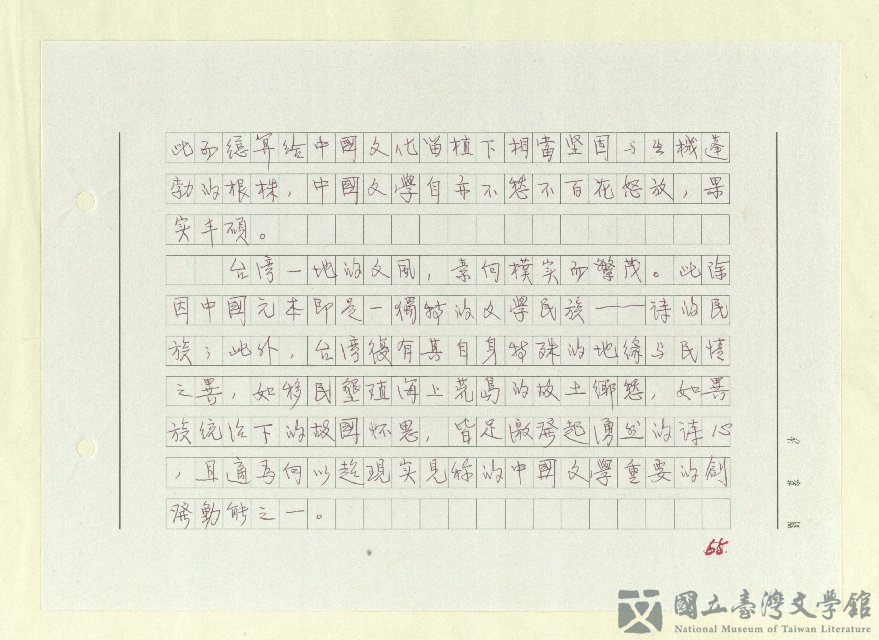 此而總算给中國文化留植下相當坚固与生機蓬
勃的根株，中國文學自亦不愁不百花怒放，果
实丰碩。
台湾一地的文風，素向樸实而繁茂。此除
因中國元本即是一獨特的文學民族——诗的民
族；此外，台湾復有其自身特殊的地缘与民情
之異，如移民墾殖海上荒島的故土鄉愁，如異
族统治下的故國怀思，皆足激發起湧出的诗心
，且適為向以超現实見称的中國文學重要的創
發動能之一。
65.
國立臺灣文學館
National Museum of Taiwan Literature